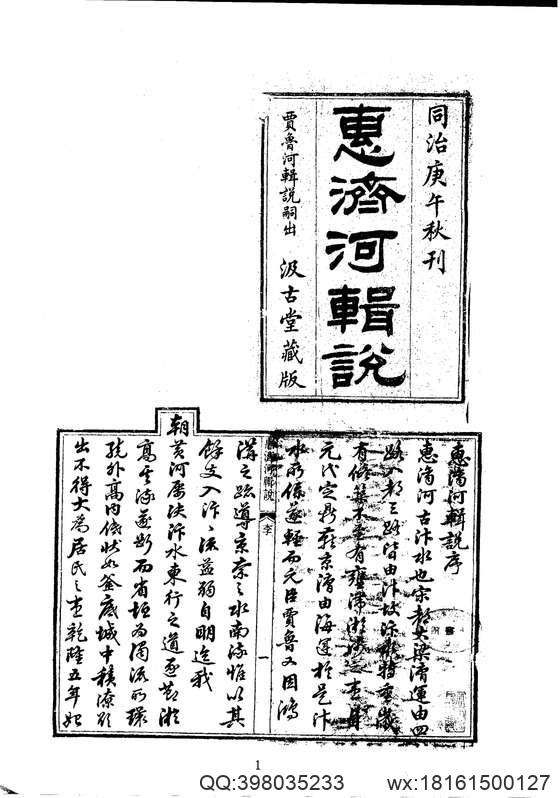 同治庚午秋刊
惠濟河輯說
賈魯河輯說嗣出
汲古堂藏版
惠濟河輯說序
惠濟河古汴水也宋都大梁漕運由四
路入都三路皆由汴故汴水特重歲
有修葺不至有壅滯淤淺之患耳
元代定鼎燕京漕由海運於是汴
水所係遂輕而元臣賈魯又因鴻
惠濟河輯說
序
一
溝之疏導京索之水南流惟以其
餘支入汴汴流益弱自明迄我
朝黃河屢決汴水東行之道遂亦淤
高其流遂斷而省垣為濁流所環
繞外高內低狀如釜底城中積潦欲
出不得大為居民之患乾隆五年始
1
QQ:398035233
wx:18161500127